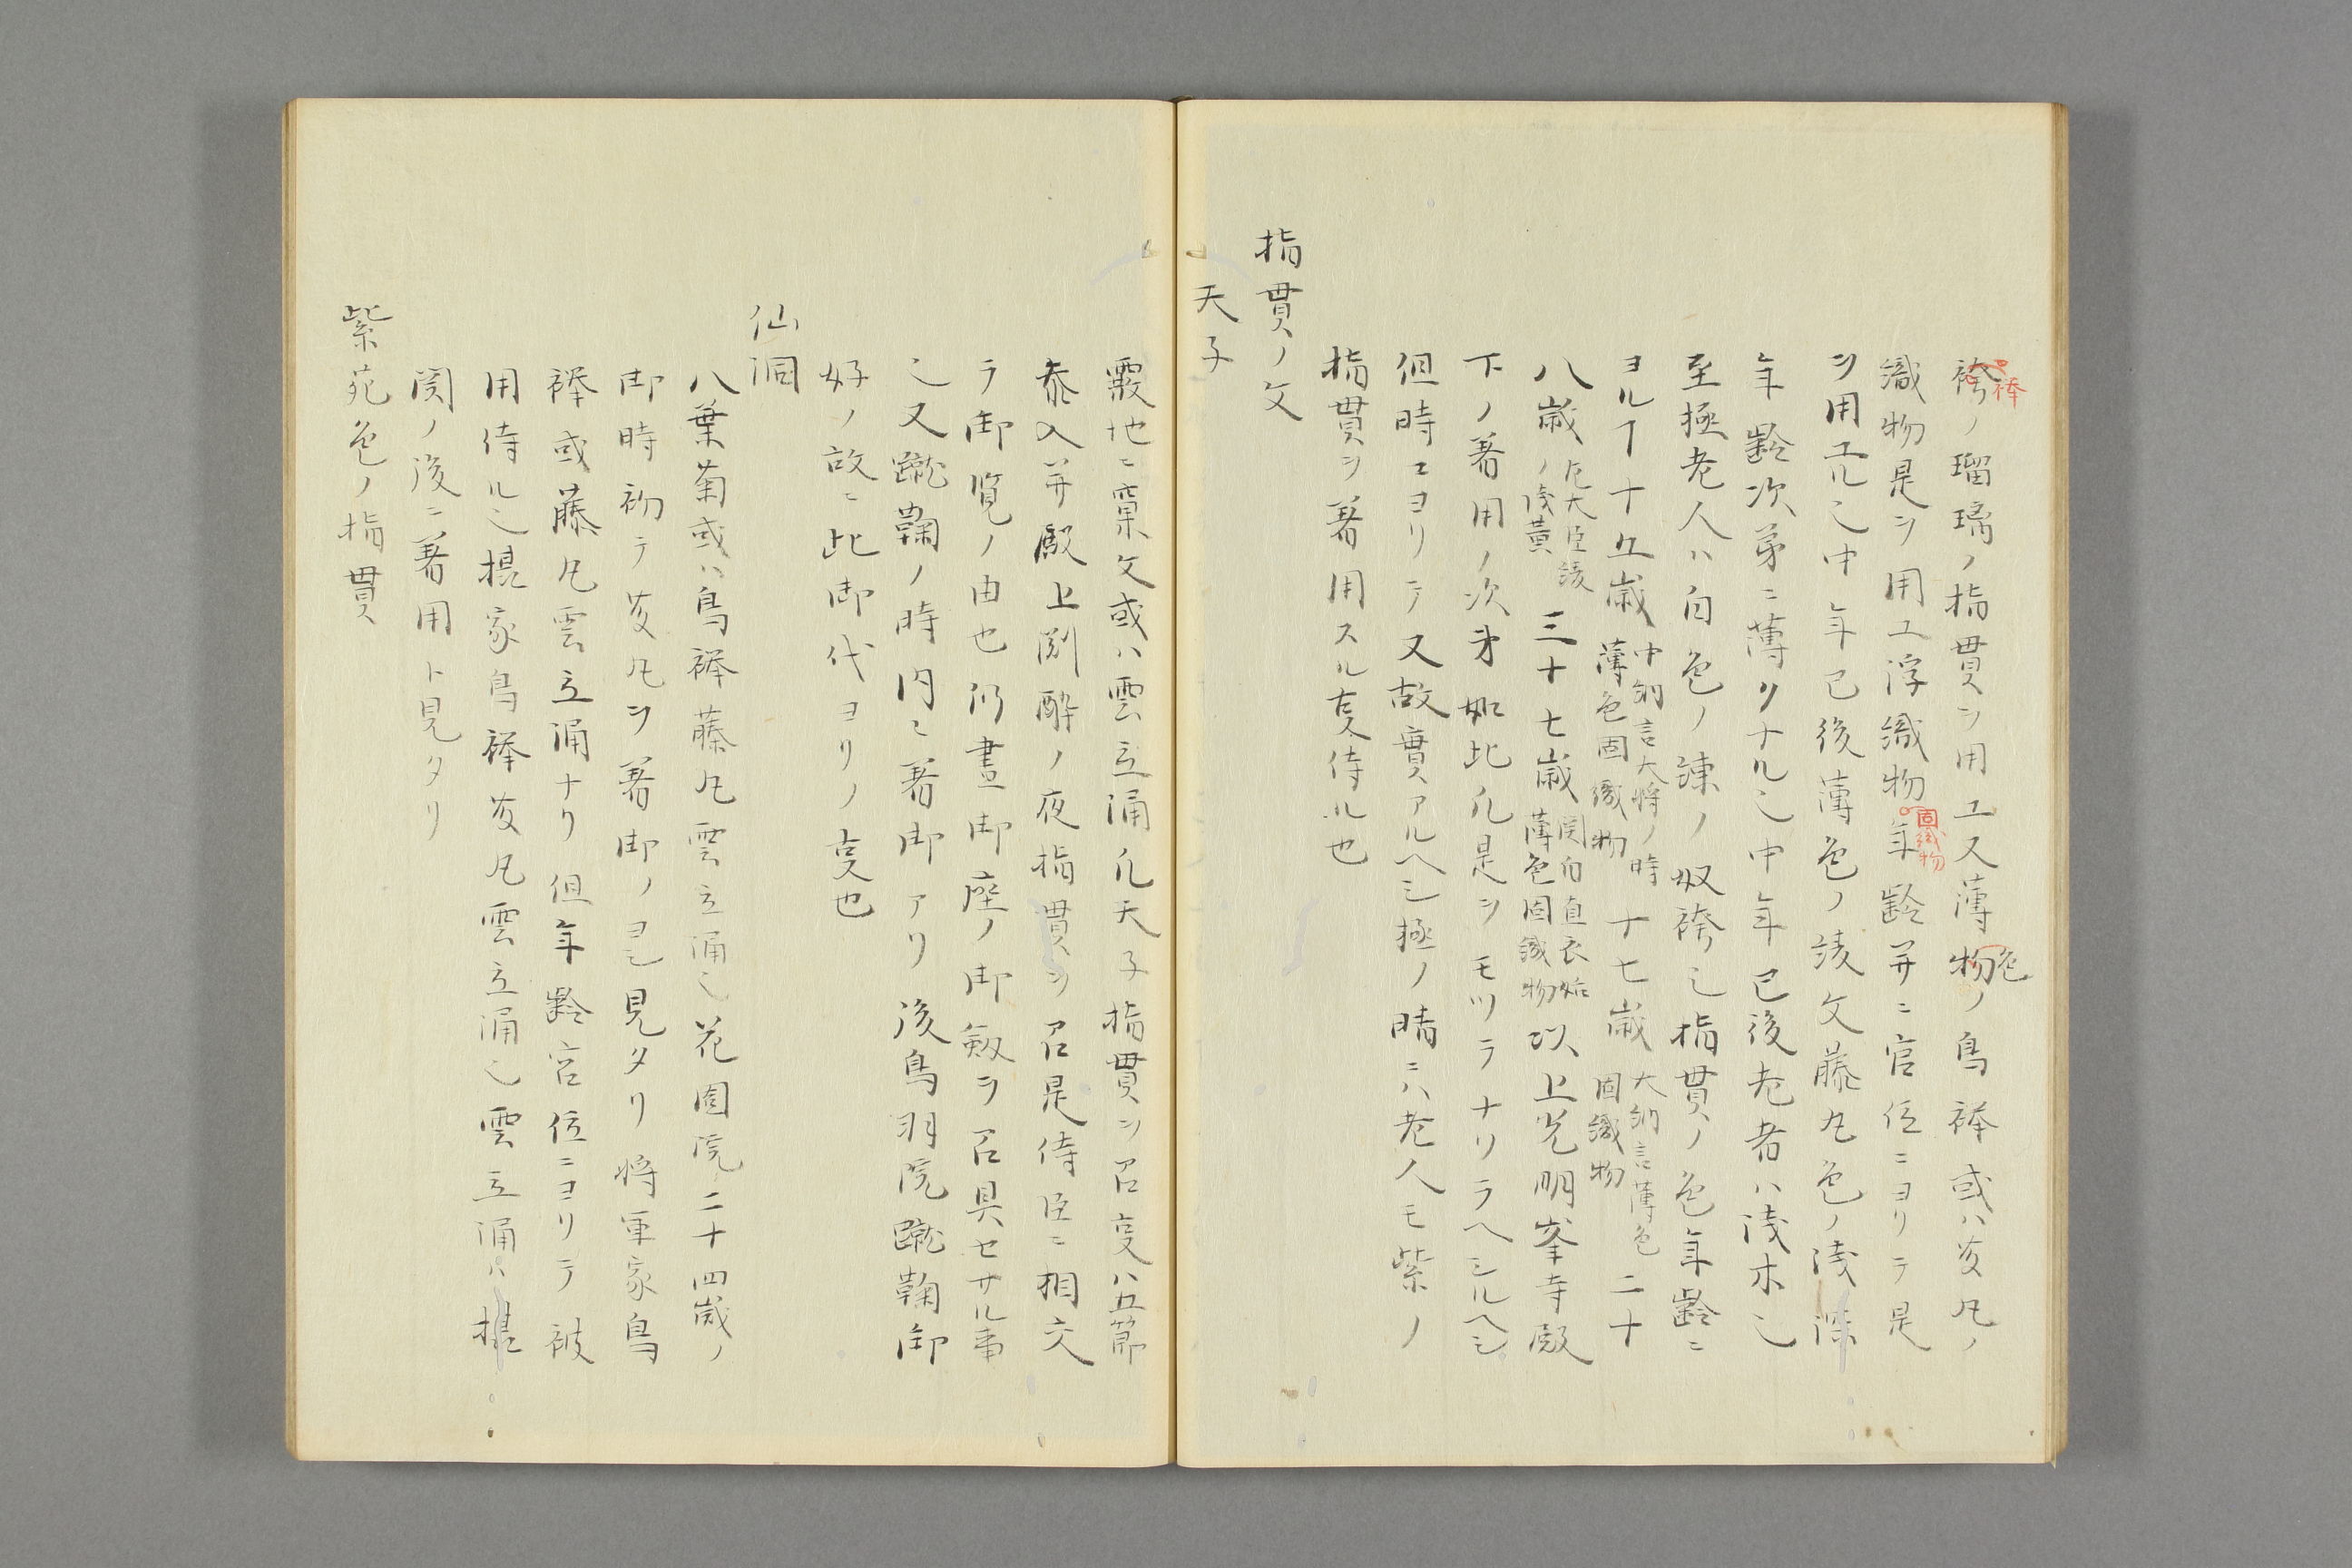 袴ノ瑠璃ノ指貫ヲ用ユ又薄物ノ鳥襷或ハ䒾丸ノ
襷
色
織物是ヲ用ユ浮織物年齢并ニ官位ニヨリテ是
固織物
ヲ用ユル也中年已後薄色ノ綾文藤丸色ノ浅深
年齢次第ニ薄クナル也中年已後老者ハ浅木也
至極老人ハ白色ノ練ノ奴袴也指貫ノ色年齢ニ
ヨルヿ十五歳中納言大将ノ時薄色固織物十七歳大納言薄色固織物二十
八歳ノ左大臣綾浅黄三十七歳関白直衣始薄色固織物以上光明峯寺殿
下ノ著用ノ次才如此凡是ヲモツテナソラヘシルヘシ
但時ニヨリテ又故實アルヘシ極ノ晴ニハ老人モ紫ノ
指貫ヲ著用スル事侍ル也
指貫ノ文
天子
霰地ニ窠文或ハ雲立涌凡天子指貫ヲ召事ハ五節
参入并殿上淵酔ノ夜指貫ヲ召是侍臣ニ相交
テ御覧ノ由也仍晝御座ノ御劔ヲ召具セサル事
也又蹴鞠ノ時内々著御アリ後鳥羽院蹴鞠御
好ノ故ニ此御代ヨリノ事也
仙洞
八葉菊或ハ鳥襷藤丸雲立涌也花園院二十四歳ノ
御時初テ䒾丸ヲ著御ノヨシ見タリ将軍家鳥
襷或藤丸雲立涌ナリ但年齢官位ニヨリテ被
用侍ル也摂家鳥襷䒾丸雲立涌也雲立涌ハ摂
関ノ後ニ著用ト見タリ
紫苑色ノ指貫